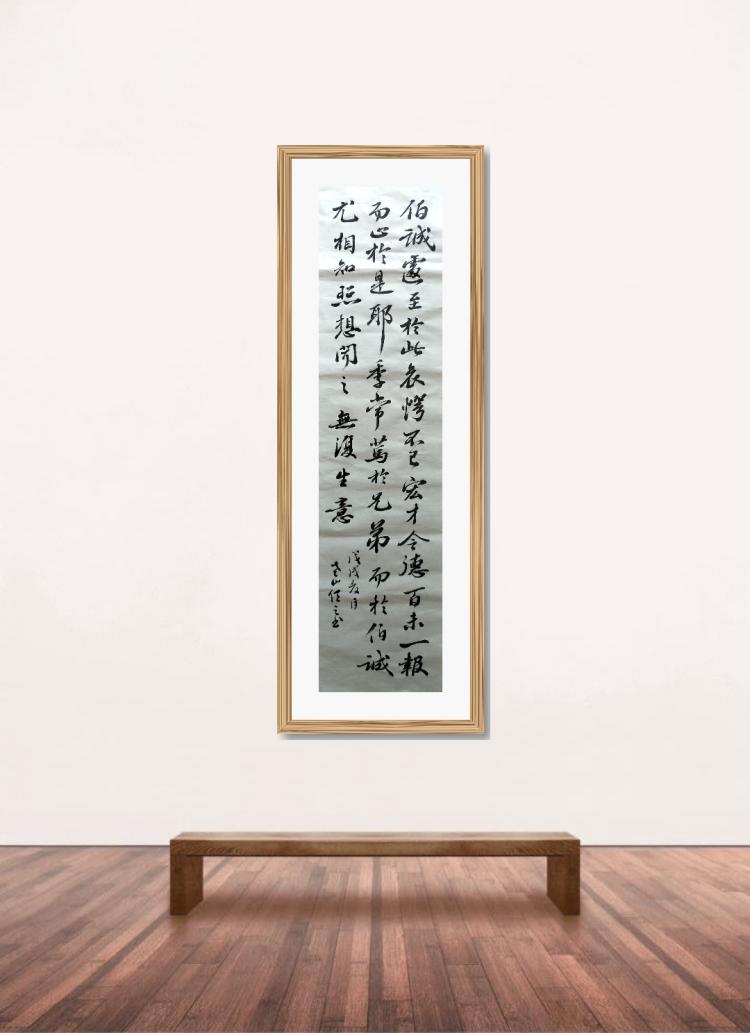 伯誠遽至於此哀愕不已宏才令德百未一報
而止於是耶季常篤於兄弟而於伯誠
尤相知照想聞之無復生意
戊戌